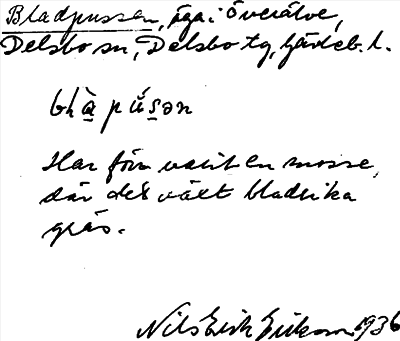 Bladpussen, äga i Överälve,
Delsbo sn, Delsbo tg, Gävleb. l.
bhà̱ pú̇s̱ən
Har förr varit en mosse,
där det växt bladrika
gräs.
Nils Erik Erikson 1936